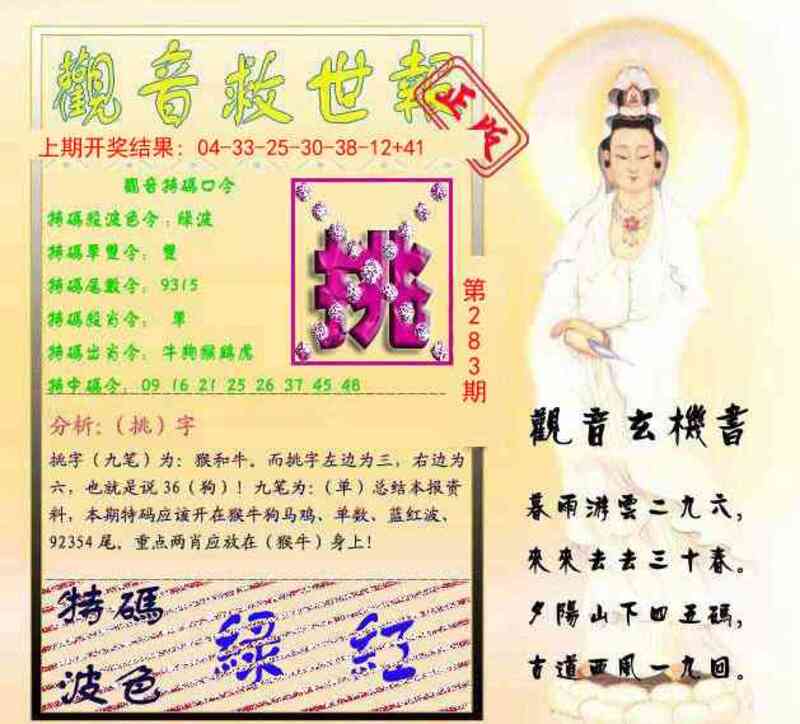 觀音救世報
正版
上期开奖结果：04-33-25-30-38-12+41
觀音特碼口令
特碼殺波色令：綠波
特碼單雙令：雙
特碼尾數令：9315
特碼殺肖令： 單
特碼出肖令：牛狗猴鷄虎
特中碼令：09 16 21 25 26 37 45 48
挑
第283期
分析：（挑）字
挑字（九笔）为：猴和牛。而挑字左边为三，右边为
六，也就是说36（狗）！九笔为：（单）总结本报资
料，本期特码应该开在猴牛狗马鸡、单数、蓝红波、
92354尾，重点两肖应放在（猴牛）身上！
特碼
波色
綠 紅
觀音玄機書
暮雨游雲二九六，
來來去去三十春。
夕陽山下四五碼，
古道西風一九回。